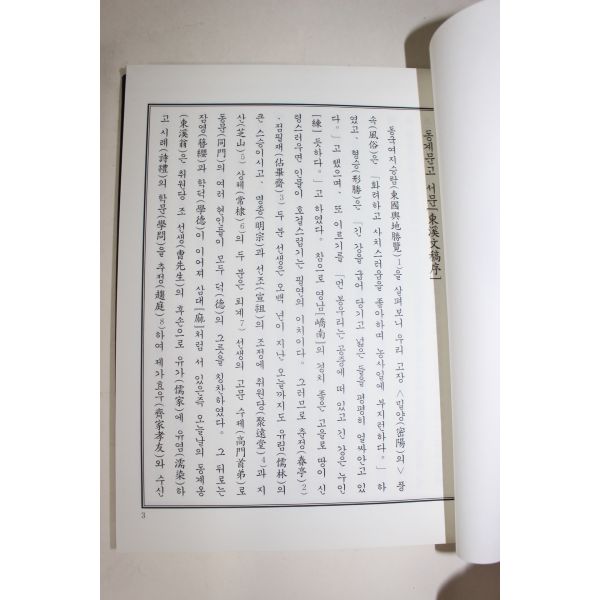 동계문고 서문[東溪文稿序]
동국여지승람(東國輿地勝覽)1)을 살펴보니 우리 고장 <밀양(密陽)의> 풍
속(風俗)은 「화려하고 사치스러움을 좋아하며 농사일에 부지런하다。」 하
였고、 형승(形勝)은 「긴 강을 굽어 당기고 넓은 들을 평평히 얼싸안고 있
다。」고 했으며、 또 이르기를 「먼 봉우리는 공중에 떠 있고 긴 강은 누인
[練] 듯하다。」고 하였다. 참으로 영남[嶠南]의 경치 좋은 고을로 땅이 신
령스러우면 인물이 호걸스럽기는 필연의 이치이다. 그러므로 춘정(春亭)2)
·점필재(佔畢齋)3) 두 분 선생은 오백 년이 지난 오늘까지도 유림(儒林)의
큰 스승이시고、 명종(明宗)과 선조(宣祖)의 조정에 취원당(聚遠堂)4)과 지
산(芝山)5) 상체(常棣)6)의 두 분은 퇴계7) 선생의 고문 수제(高門首弟)로
동문(同門)의 여러 현인들이 모두 덕(德)의 그릇을 칭찬하였다. 그 뒤로는
잠영(簪纓)과 학덕(學德)이 이어져 삼대[麻]처럼 서 있은즉 오늘날의 동계옹
(東溪翁)은 취원당 조 선생(曺先生)의 후손으로 유가(儒家)에 유염(濡染)하
고 시례(詩禮)의 학문(學問)을 추정(趨庭)8)하여 제가효우(齊家孝友)와 수신
3